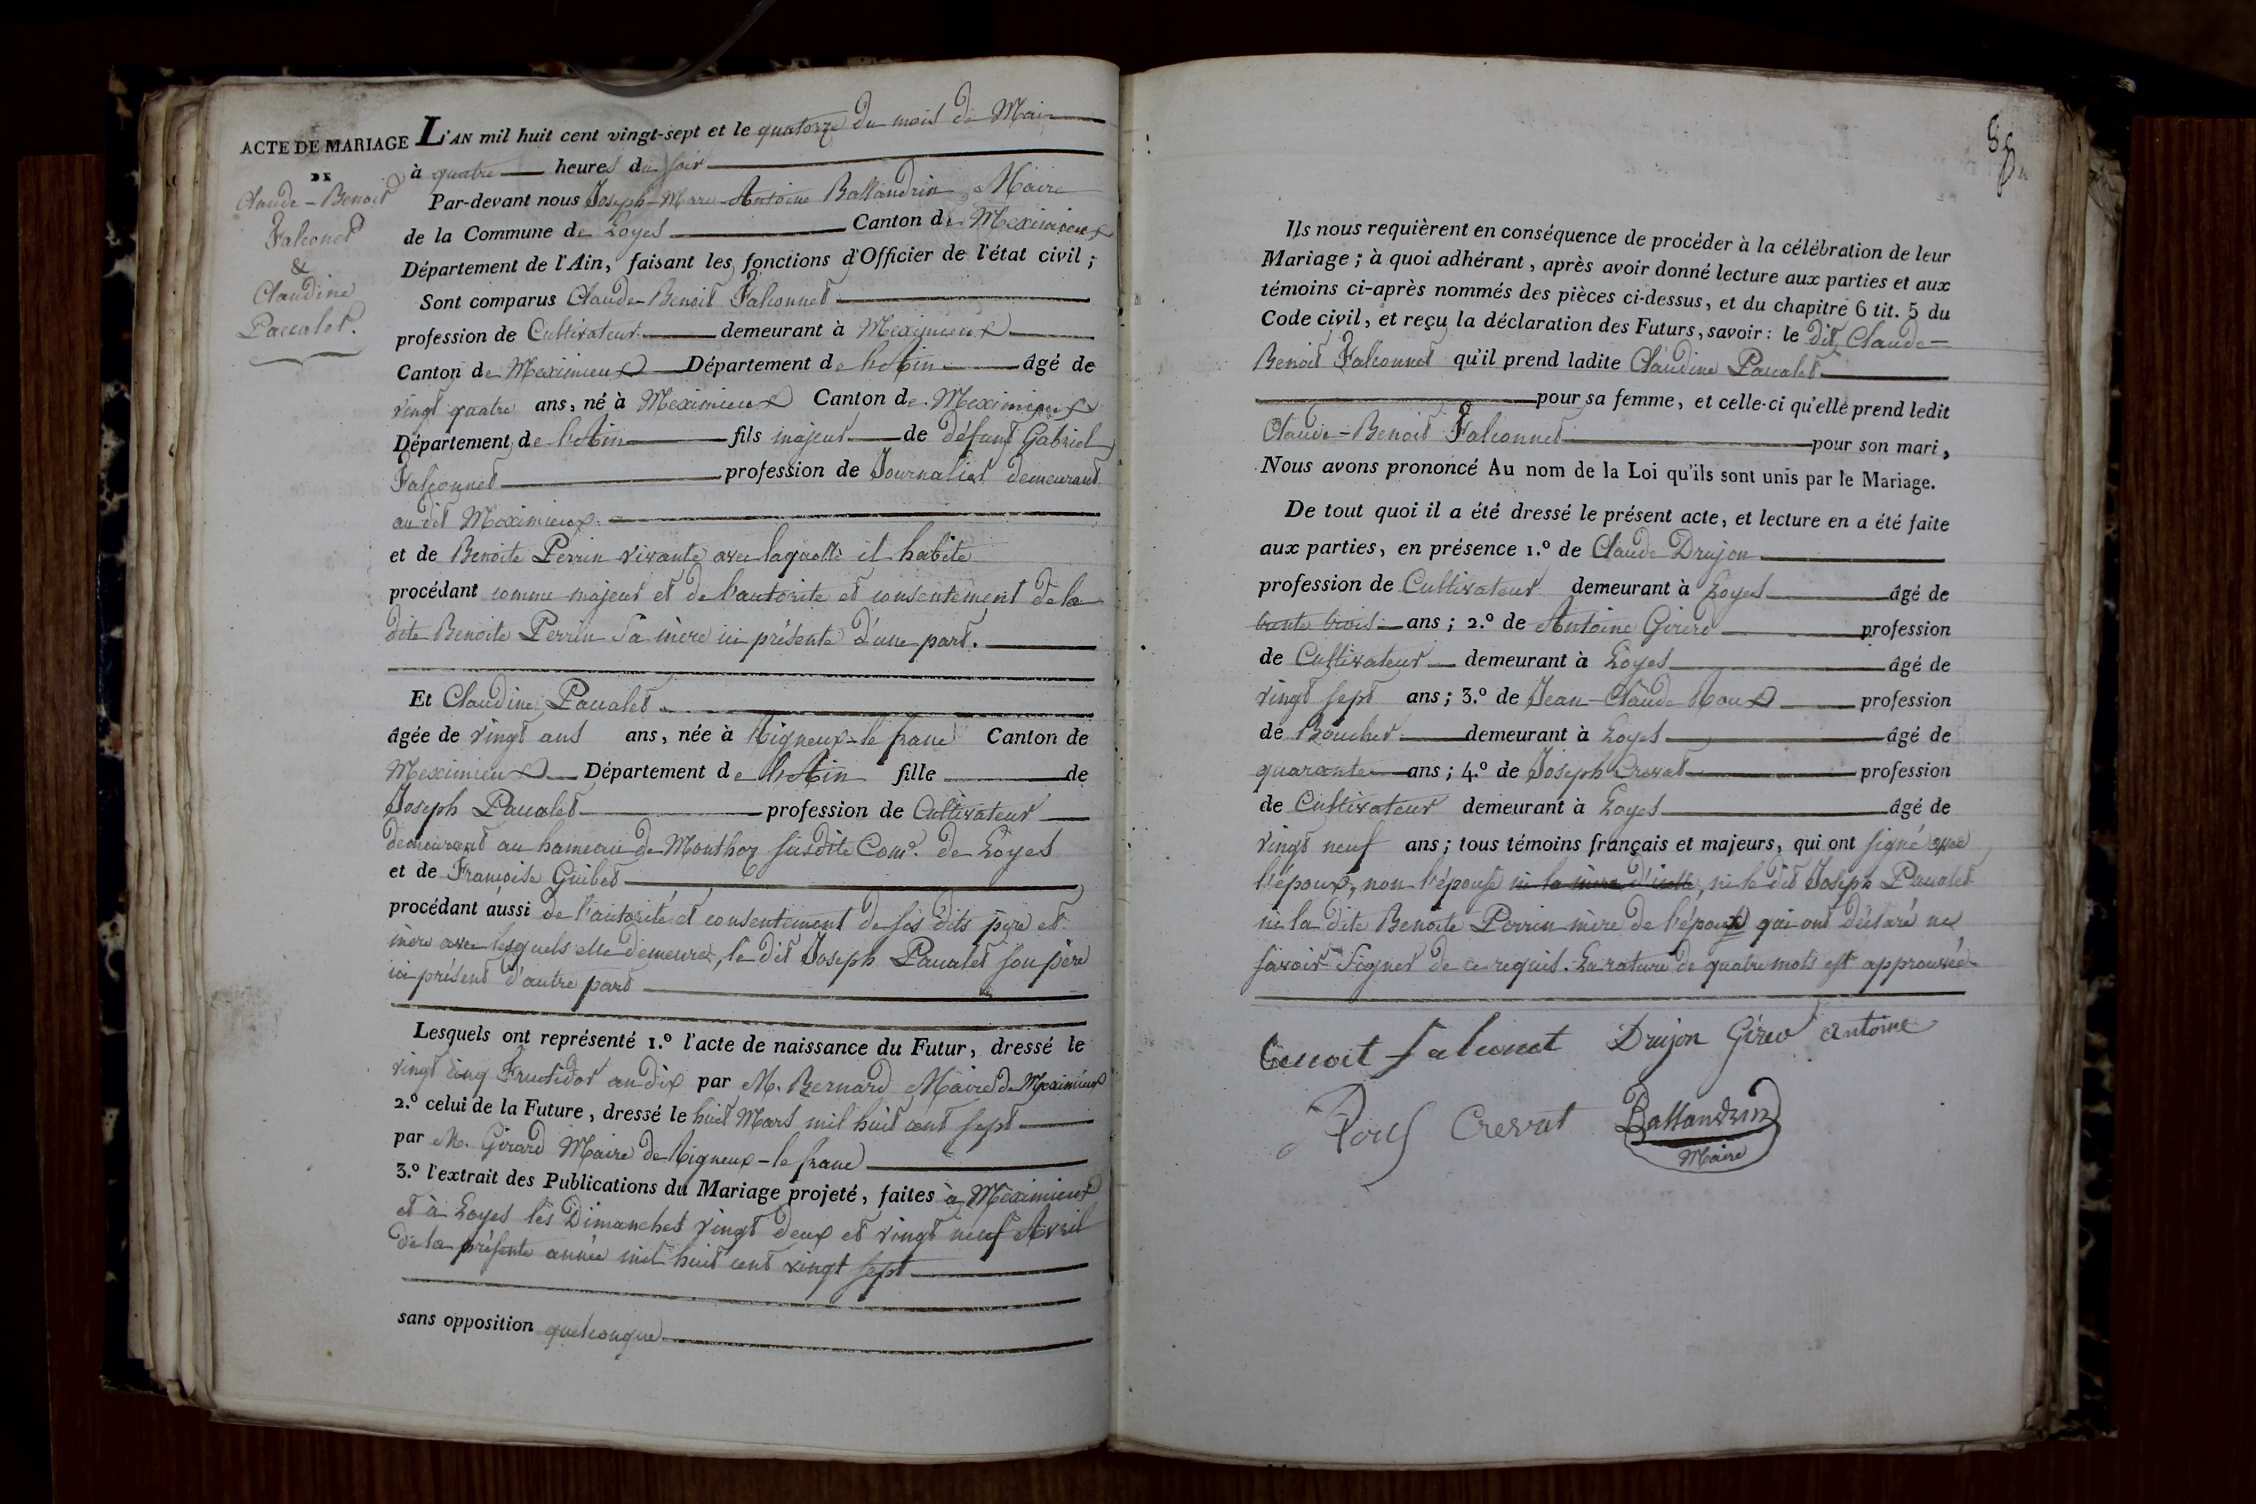 ACTE DE MARIAGE
DE
Claude-Benoit
Falconet
&
Claudine
Paccalet.
L'AN mil huit cent vingt-sept et le quatorze du mois de Mai
à quatre heures du soir
Par-devant nous Joseph-Marie-Antoine Ballandrin Maire
de la Commune de Loyes Canton de Meximieux
Département de l'Ain, faisant les fonctions d'Officier de l'état civil;
Sont comparus Claude-Benoit Falconnet
profession de Cultivateur demeurant à Meximieux
Canton de Meximieux Département de l'Ain âgé de
vingt quatre ans, né à Meximieux Canton de Meximieux
Département de l'Ain fils majeur de défunt Gabriel
Falconnet profession de Journalier demeurant
au dit Meximieux
et de Benoite Perrin vivante avec laquelle il habite
procédant comme majeur et de l'autorité et consentement de la
dite Benoite Perrin sa mère ici présente D'une part.
Et Claudine Paccalet
âgée de vingt ans ans, née à Rigneux-le franc Canton de
Meximieux Département de l'Ain fille de
Joseph Paccalet profession de Cultivateur
demeurant au hameau de Monthoz susdite Com.e de Loyes
et de Françoise Guibet
procédant aussi de l'autorité et consentement de ses dits père et
mère avec lesquels elle demeure, le dit Joseph Paccalet son père
ici présent d'autre part
Lesquels ont représenté 1.º l'acte de naissance du Futur, dressé le
vingt cinq Fructidor an dix par M. Bernard Maire de Meximieux
2.º celui de la Future, dressé le huit Mars mil huit cent sept
par M. Girard Maire de Rigneux-le franc
3.º l'extrait des Publications du Mariage projeté, faites à Meximieux
et à Loyes les Dimanches vingt deux et vingt neuf Avril
de la présente année mil huit cent vingt sept
sans opposition quelconque
Ils nous requièrent en conséquence de procéder à la célébration de leur
Mariage; à quoi adhérant, après avoir donné lecture aux parties et aux
témoins ci-après nommés des pièces ci-dessus, et du chapitre 6 tit. 5 du
Code civil, et reçu la déclaration des Futurs, savoir: le dit Claude-
Benoit Falconnet qu'il prend ladite Claudine Paccalet
pour sa femme, et celle-ci qu'elle prend ledit
Claude-Benoit Falconnet pour son mari,
Nous avons prononcé Au nom de la Loi qu'ils sont unis par le Mariage.
De tout quoi il a été dressé le présent acte, et lecture en a été faite
aux parties, en présence 1.º de Claude Drujon
profession de Cultivateur demeurant à Loyes âgé de
trente trois ans; 2.º de Antoine Girerd profession
de Cultivateur demeurant à Loyes âgé de
vingt sept ans; 3.º de Jean-Claude Roux profession
de Boucher demeurant à Loyes âgé de
quarante ans; 4.º de Joseph Crevat profession
de Cultivateur demeurant à Loyes âgé de
vingt neuf ans; tous témoins français et majeurs, qui ont signé avec
l'époux, non l'épouse ni la mère d'icelle, ni le dit Joseph Paccalet
ni la dite Benoite Perrin mère de l'époux qui ont déclaré ne
savoir signer de ce requis. La rature de quatre mots est approuvée
Benoit falconet Drujon Girerd antoine
Roux Crevat Ballandrin
Maire